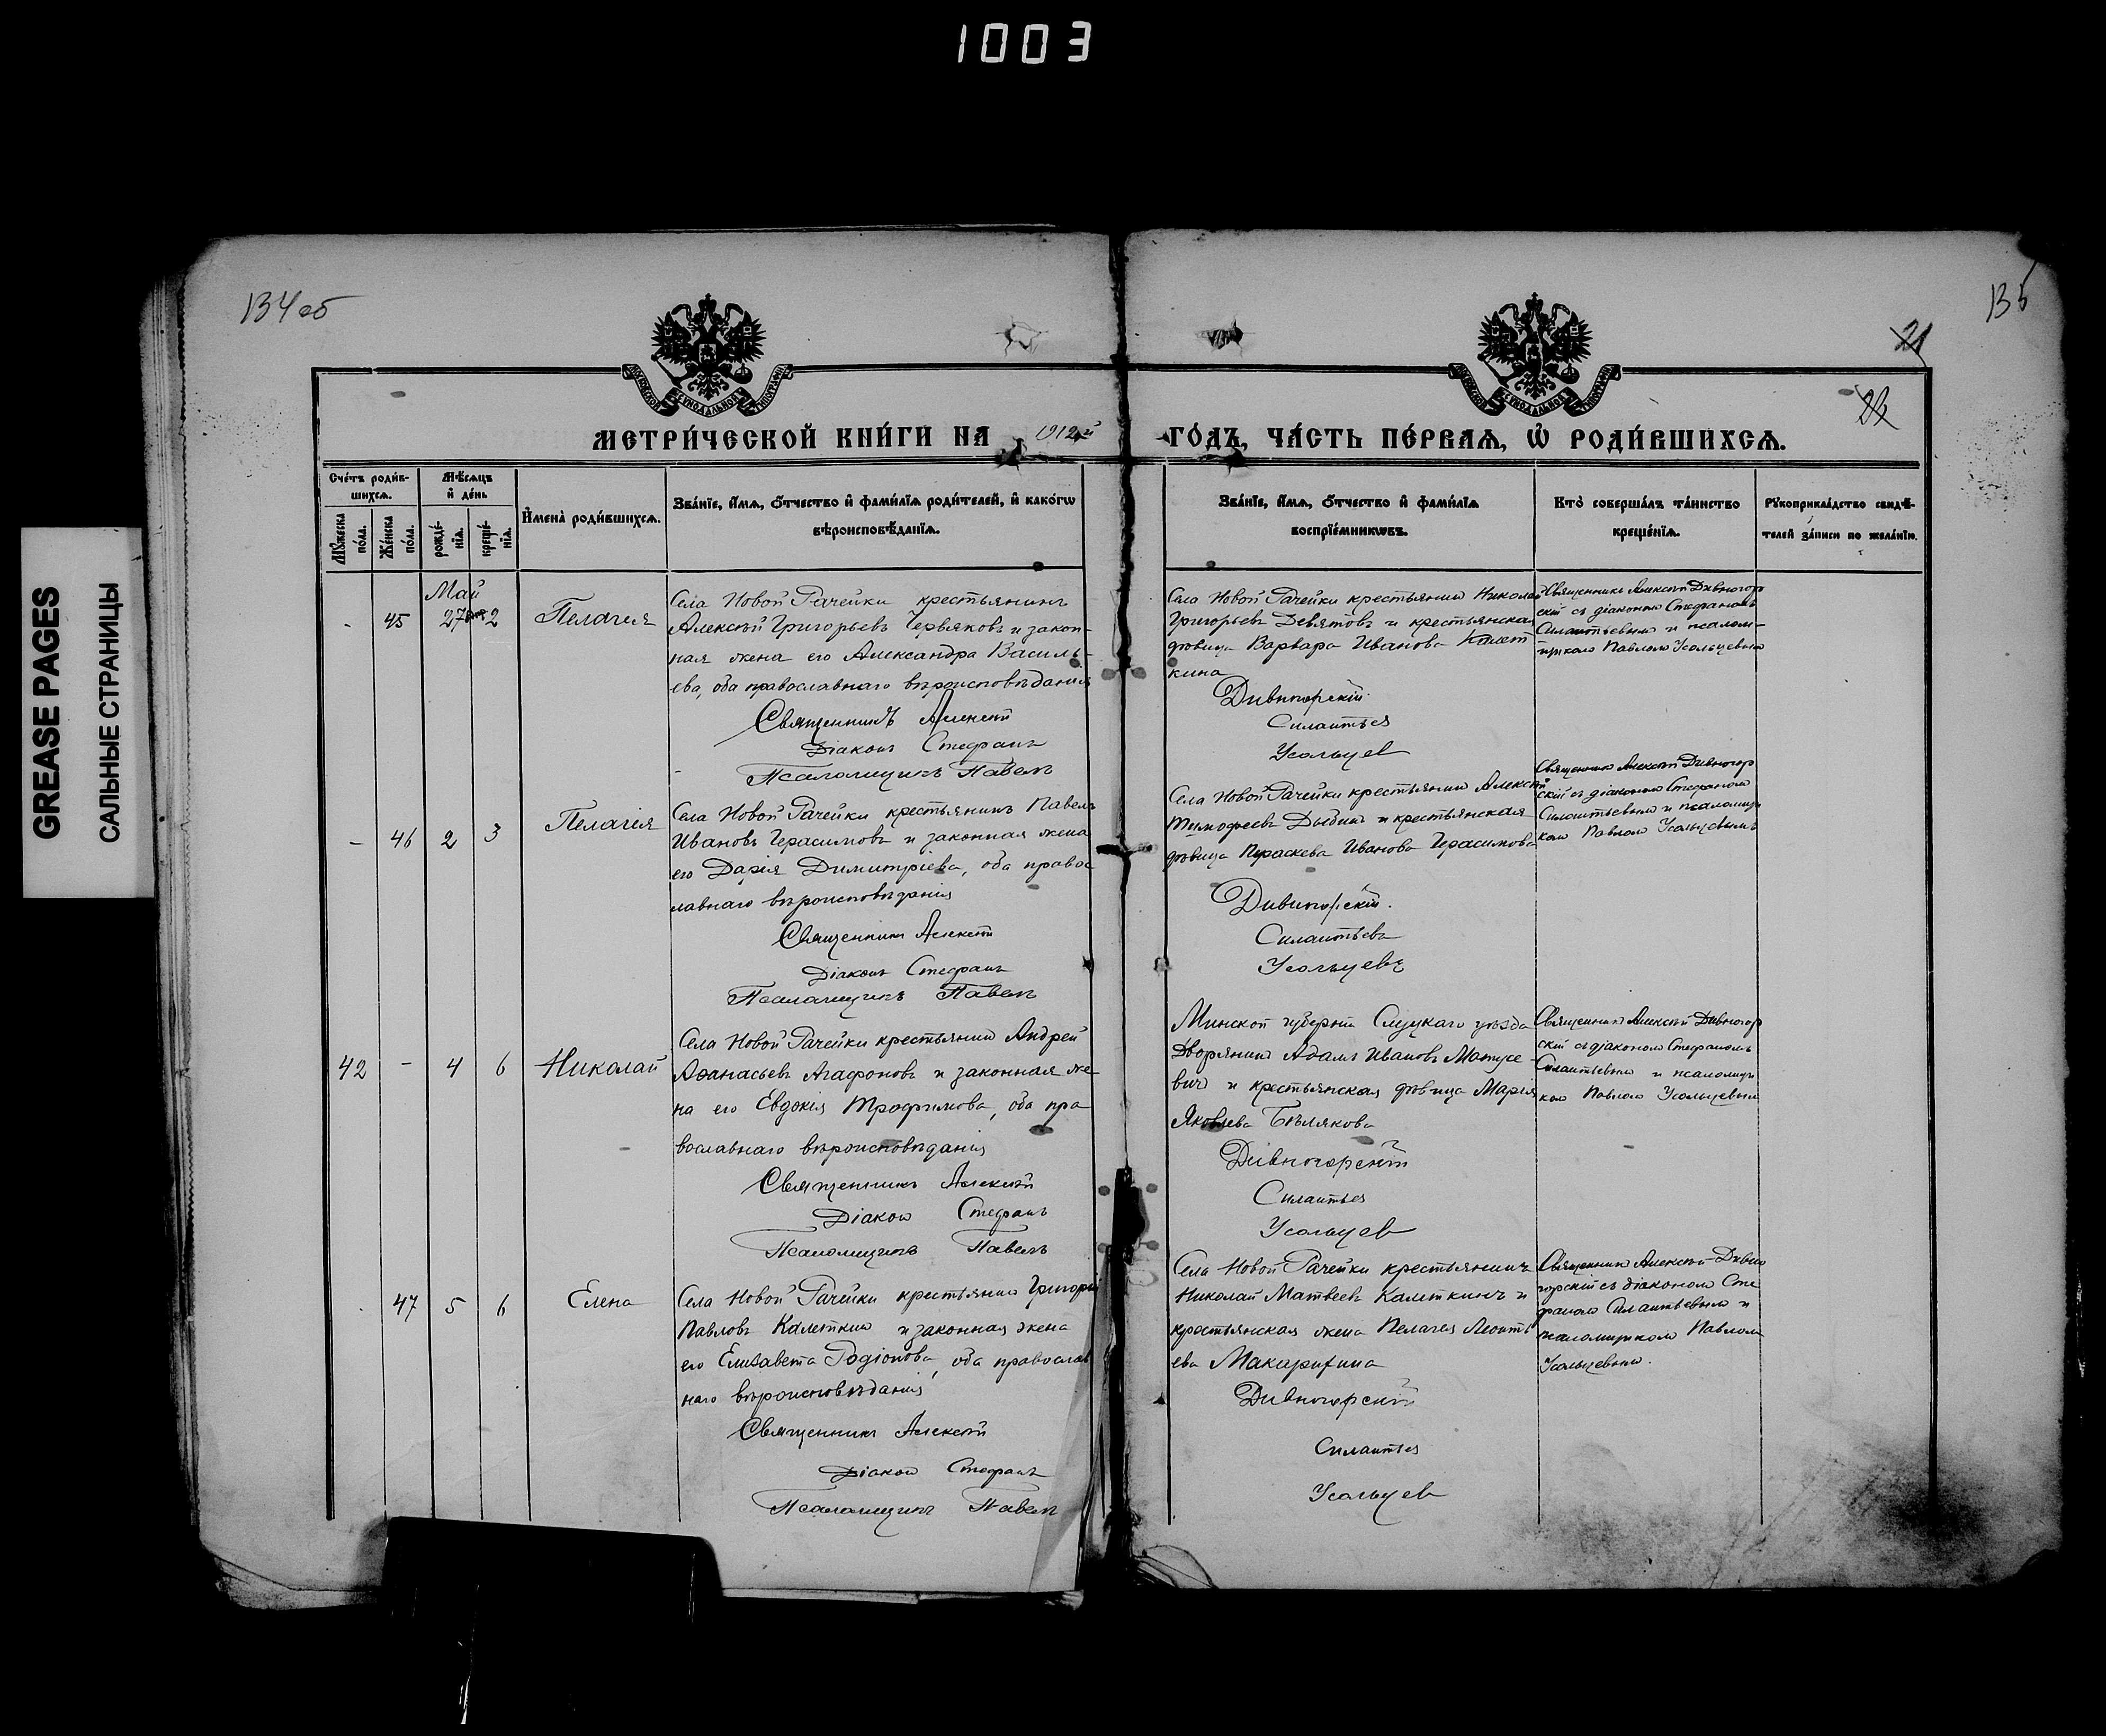 1003
GREASE PAGES
САЛЬНЫЕ СТРАНИЦЫ
134 об
135
21
22
МЕТРИ́ЧЕСКОЙ КНИ́ГИ НА 1912й ГО́ДЪ, ЧА́СТЬ ПЕ́РВАѦ, Ѡ҆ РОДИ́ВШИХСѦ.
Сче́тъ роди́в-
шихсѧ.
Мѣ́сѧцъ
и҆ де́нь
Мꙋ́жеска по́ла.
Же́нска по́ла.
рожде́-
нїѧ.
креще́-
нїѧ.
И҆мена̀ роди́вшихсѧ.
Зва́нїе, и҆́мѧ, ѻ҆́тчество и҆ фами́лїѧ роди́телей, и҆ како́гѡ
вѣроисповѣ́данїѧ.
Зва́нїе, и҆́мѧ, ѻ҆́тчество и҆ фами́лїѧ
воспрїе́мникѡвъ.
Кто̀ соверша́лъ та́инство
креще́нїѧ.
Рꙋкоприкла́дство свидѣ́-
телей за́писи по жела́нїю.
Май
- 45 27 2 Пелагея
Села Новой Рачейки крестьянинъ
Алексѣй Григорьевъ Червяковъ и закон-
ная жена его Александра Василь-
ева, оба православнаго вѣроисповѣданія
Священникъ Алексѣй
Діаконъ Стефанъ
Псаломщикъ Павелъ
Села Новой Рачейки крестьянинъ Николай
Григорьевъ Девятовъ и крестьянская
дѣвица Варвара Иванова Калет
кина
Дивногорскій
Силантьев
Усольцев
Священникъ Алексѣй Дивногор
скій съ діакономъ Стефаномъ
Силантьевымъ и псалом-
щикомъ Павломъ Усольцевымъ
- 46 2 3 Пелагія
Села Новой Рачейки крестьянинъ Павелъ
Ивановъ Герасимовъ и законная жена
его Дарія Димитріева, оба правос
лавнаго вѣроисповѣданія
Священникъ Алексѣй
Діаконъ Стефанъ
Псаломщикъ Павелъ
Села Новой Рачейки крестьянинъ Алексѣй
Тимофеевъ Дыбинъ и крестьянская
дѣвица Параскева Иванова Герасимова
Дивногорскій.
Силантьевъ
Усольцевъ
Священникъ Алексѣй Дивногор
скій съ діакономъ Стефаномъ
Силантьевымъ и псаломщи
комъ Павломъ Усольцевымъ
42 - 4 6 Николай
Села Новой Рачейки крестьянинъ Андрей
Афанасьевъ Агафоновъ и законная же-
на его Евдокія Трофимова, оба пра
вославнаго вѣроисповѣданія
Священникъ Алексѣй
Діаконъ Стефанъ
Псаломщикъ Павелъ
Минской губерніи Слуцкаго уѣзда
Дворянинъ Адамъ Ивановъ Матусе-
вичъ и крестьянская дѣвица Марія
Яковлева Бѣлякова
Дивногорскій
Силантьев
Усольцев
Священникъ Алексѣй Дивногор
скій съ діакономъ Стефаномъ
Силантьевымъ и псаломщи
комъ Павломъ Усольцевымъ
47 5 6 Елена
Села Новой Рачейки крестьянинъ Григорій
Павловъ Калеткинъ и законная жена
его Елизавета Родіонова, оба православ
наго вѣроисповѣданія
Священникъ Алексѣй
Діаконъ Стефанъ
Псаломщикъ Павелъ
Села Новой Рачейки крестьянинъ
Николай Матвеевъ Калеткинъ и
крестьянская жена Пелагея Леонть
ева Макарихина
Дивногорскій
Силантьев
Усольцев
Священникъ Алексѣй Дивно
горскій съ діакономъ Сте
фаномъ Силантьевымъ и
псаломщикомъ Павломъ
Усольцевымъ.